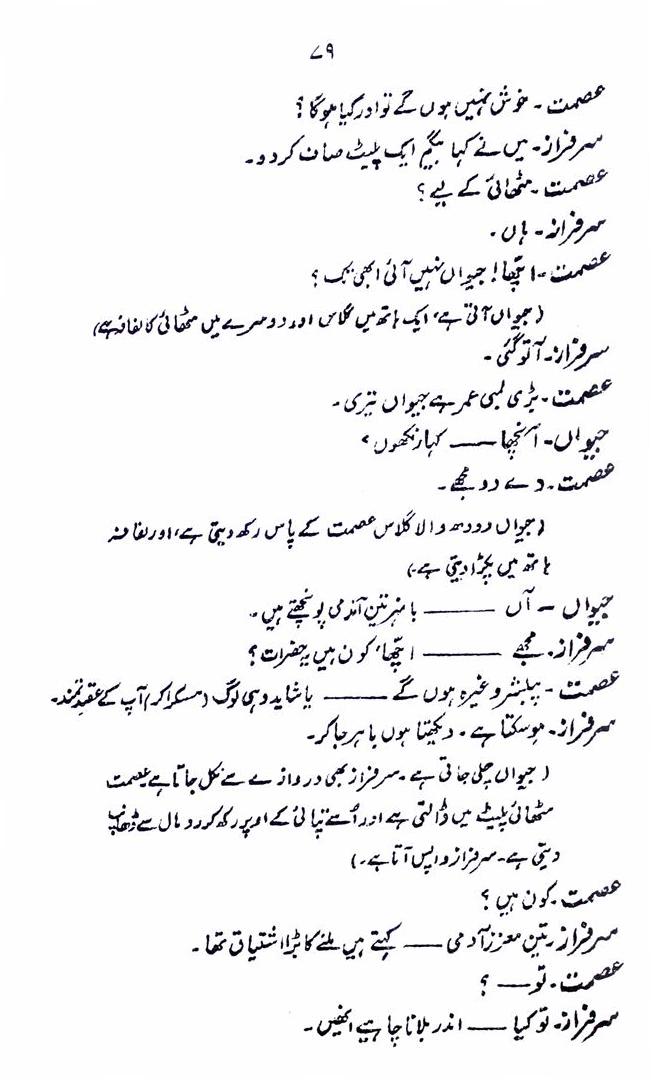 ۷۹
عصمت ۔ خوش نہیں ہوں گے تو اور کیا ہوگا؟
سرفراز۔ میں نے کہا بیگم ایک پلیٹ صاف کر دو۔
عصمت ۔ مٹھائی کے لیے؟
سرفراز ۔ ہاں ۔
عصمت ۔ اچھا! جیواں نہیں آئی ابھی تک؟
(جیواں آتی ہے، ایک ہاتھ میں گلاس اور دوسرے میں مٹھائی کا لفافہ ہے)
سرفراز۔ آ تو گئی ۔
عصمت ۔ بڑی لمبی عمر ہے جیواں تیری ۔
جیواں ۔ آنچھا —— کہا رنکھوں؟
عصمت ۔ دے دو مجھے ۔
(جیواں دودھ والا گلاس عصمت کے پاس رکھ دیتی ہے، اور لفافہ
ہاتھ میں پکڑا دیتی ہے۔)
جیواں ۔ آں —— بانہر تین آندمی پونچھتے ہیں ۔
سرفراز۔ مجھے —— اچھا، کون ہیں یہ حضرات؟
عصمت ۔ پبلشر وغیرہ ہوں گے —— یا شاید وہی لوگ (مسکرا کر) آپ کے عقیدتمند۔
سرفراز۔ ہو سکتا ہے ۔ دیکھتا ہوں باہر جا کر۔
(جیواں چلی جاتی ہے ۔ سرفراز بھی دروازے سے نکل جاتا ہے عصمت
مٹھائی پلیٹ میں ڈالتی ہے اور اُسے تپائی کے اوپر رکھ کر رومال سے ڈھانپ
دیتی ہے۔ سرفراز واپس آتا ہے۔)
عصمت ۔ کون ہیں؟
سرفراز ۔ تین معزز آدمی —— کہتے ہیں ملنے کا بڑا اشتیاق تھا ۔
عصمت ۔ تو ——؟
سرفراز۔ تو کیا —— اندر بلانا چاہیے انھیں ۔